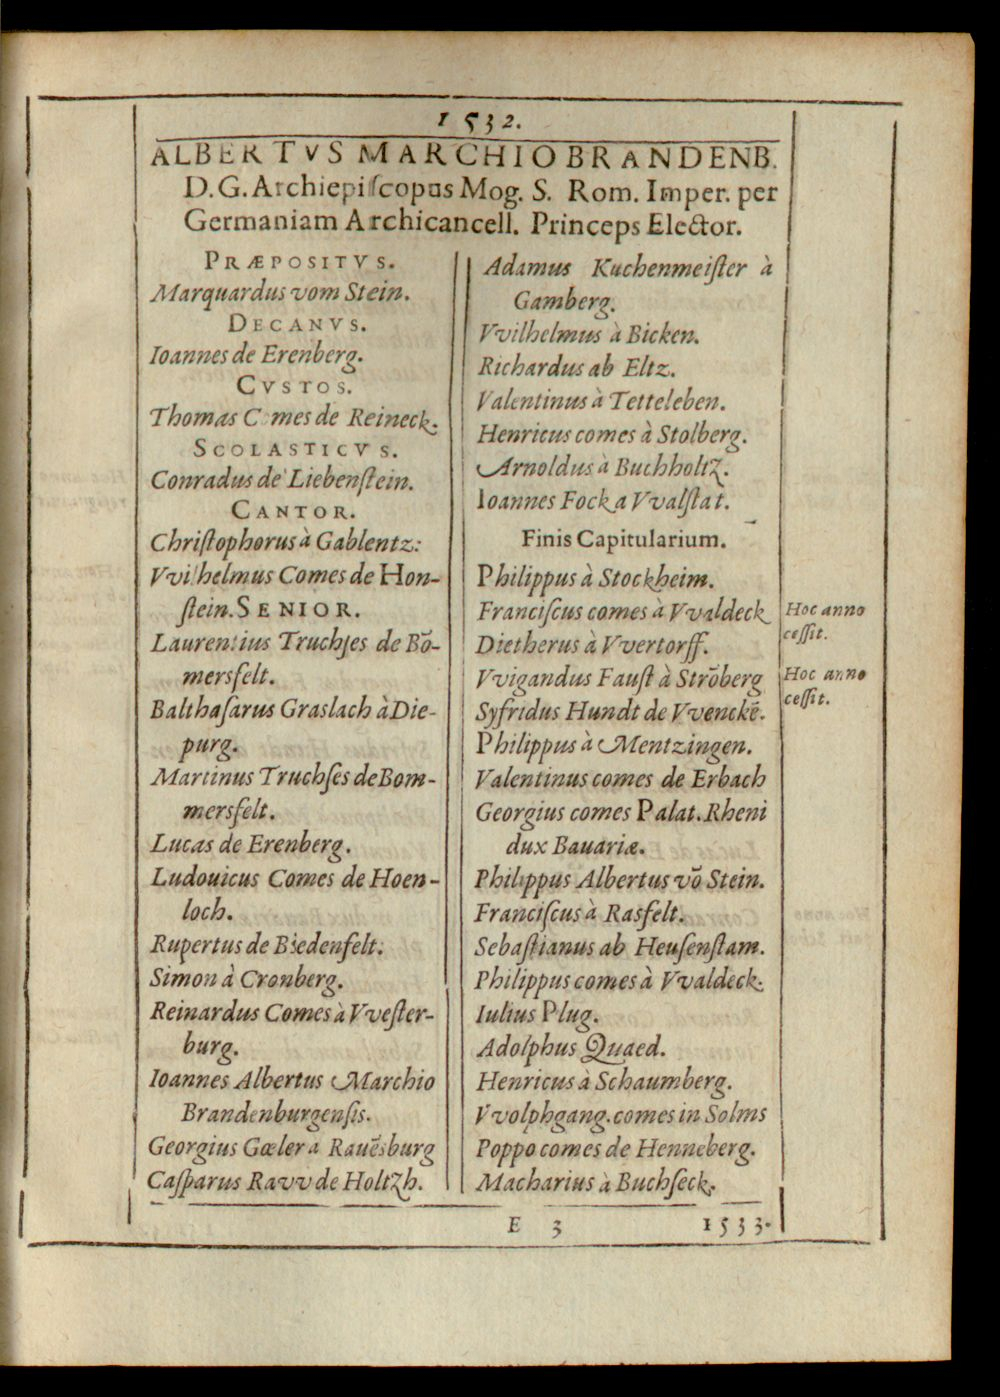 1532.
ALBERTVS MARCHIO BRANDENB.
D.G. Archiepiſcopus Mog. S. Rom. Imper. per
Germaniam Archicancell. Princeps Elector.
PRÆPOSITVS.
Marquardus vom Stein.
DECANVS.
Ioannes de Erenberg.
CVSTOS.
Thomas Comes de Reineck.
SCOLASTICVS.
Conradus de Liebenſtein.
CANTOR.
Chriſtophorus à Gablentz:
Vvilhelmus Comes de Hon-
ſtein. SENIOR.
Laurentius Truchſes de Bō-
mersfelt.
Balthaſarus Graslach à Die-
purg.
Martinus Truchſes de Bom-
mersfelt.
Lucas de Erenberg.
Ludouicus Comes de Hoen-
loch.
Rupertus de Biedenfelt.
Simon à Cronberg.
Reinardus Comes à Vveſter-
burg.
Ioannes Albertus Marchio
Brandenburgenſis.
Georgius Gœler a Rauēsburg
Caſparus Ravv de Holtzh.
Adamus Kuchenmeiſter à
Gamberg.
Vvilhelmus à Bicken.
Richardus ab Eltz.
Valentinus à Tetteleben.
Henricus comes à Stolberg.
Arnoldus à Buchholtz.
Ioannes Fock a Vvalſtat.
Finis Capitularium.
Philippus à Stockheim.
Franciſcus comes à Vvaldeck
Dietherus à Vvertorff.
Vvigandus Fauſt à Strōberg
Syfridus Hundt de Vvenckē.
Philippus à Mentzingen.
Valentinus comes de Erbach
Georgius comes Palat. Rheni
dux Bauariæ.
Philippus Albertus vō Stein.
Franciſcus à Rasfelt.
Sebaſtianus ab Heuſenſtam.
Philippus comes à Vvaldeck.
Iulius Plug.
Adolphus Quaed.
Henricus à Schaumberg.
Vvolphgang. comes in Solms
Poppo comes de Henneberg.
Macharius à Buchſeck.
Hoc anno
ceſſit.
Hoc anno
ceſſit.
E 3
1533.